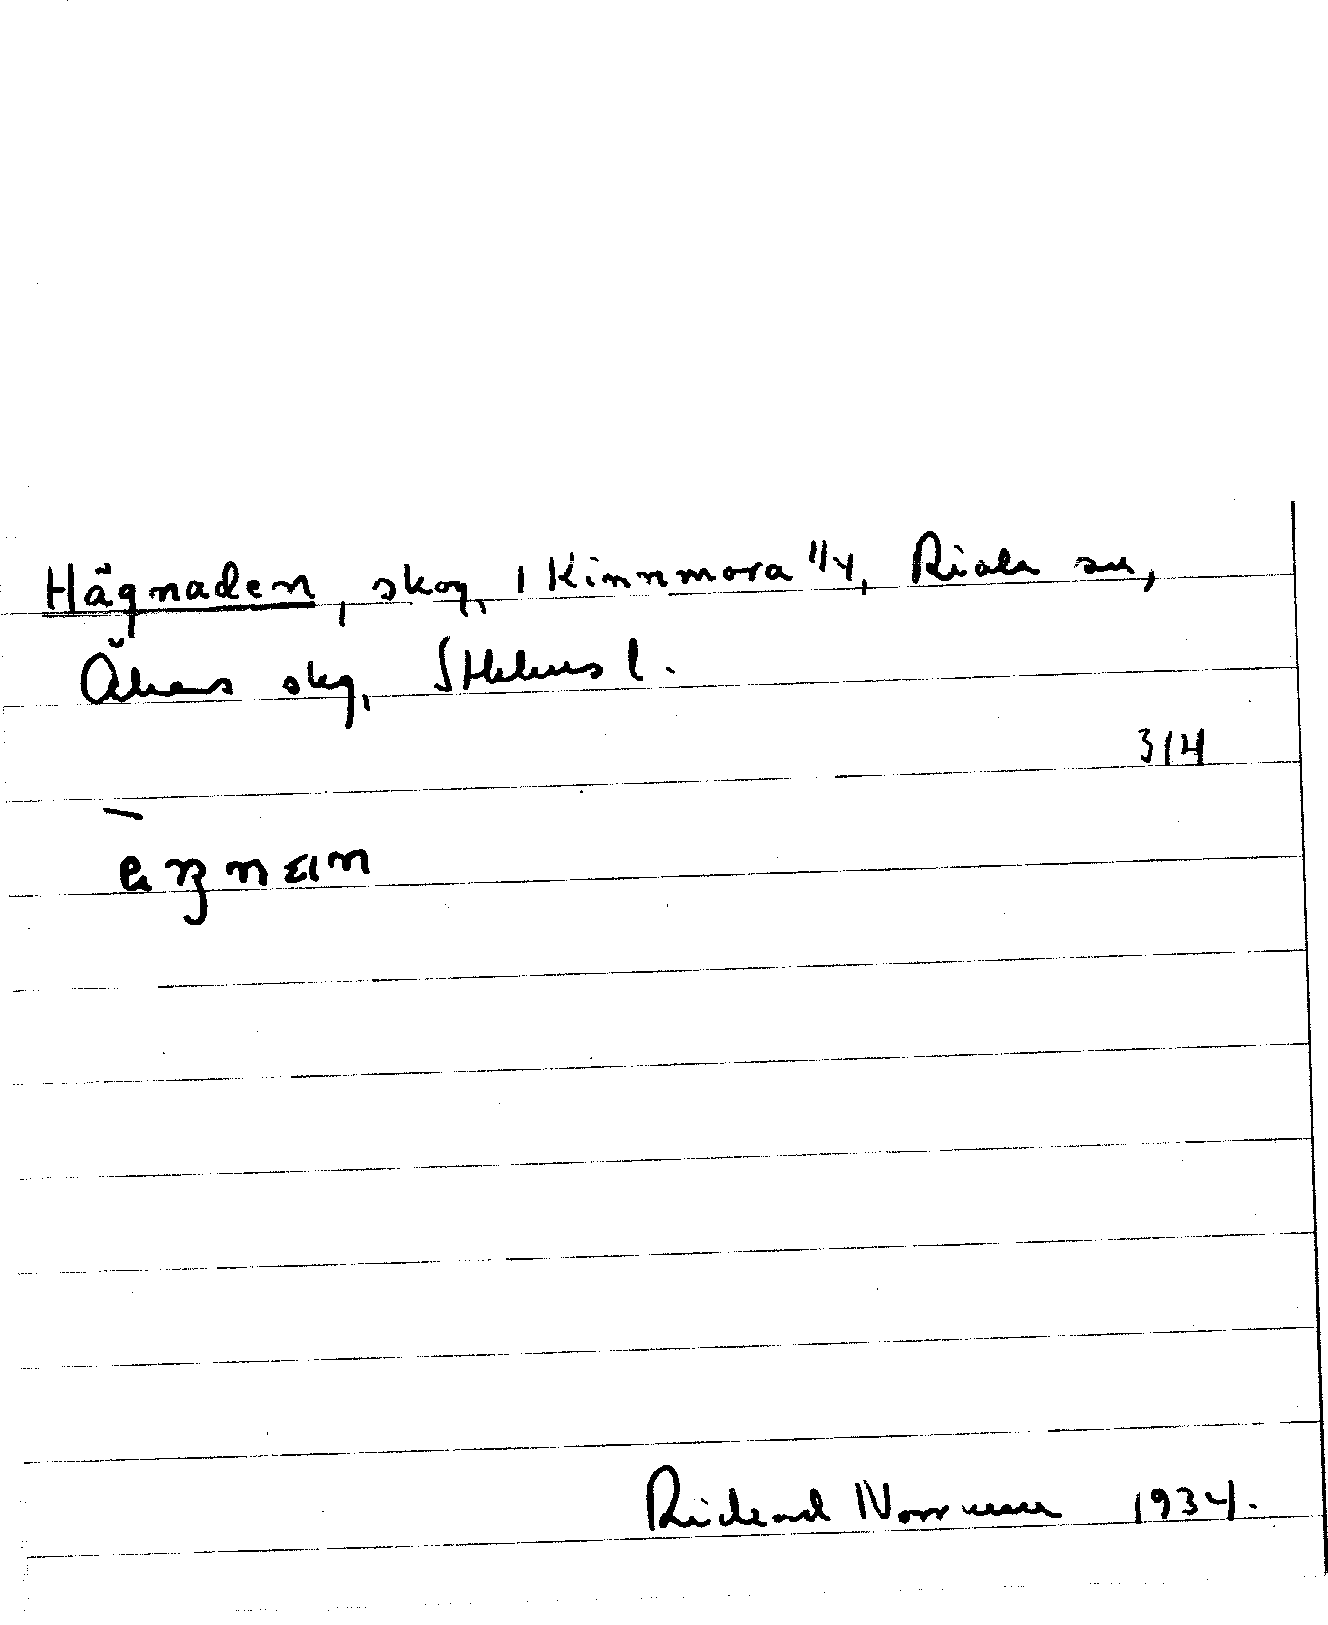 Hägnaden, skog, i Kinnmora 1/4, Riala sn,
Åkers skg, Sthlms l.
314
Rickard Norrman 1934.